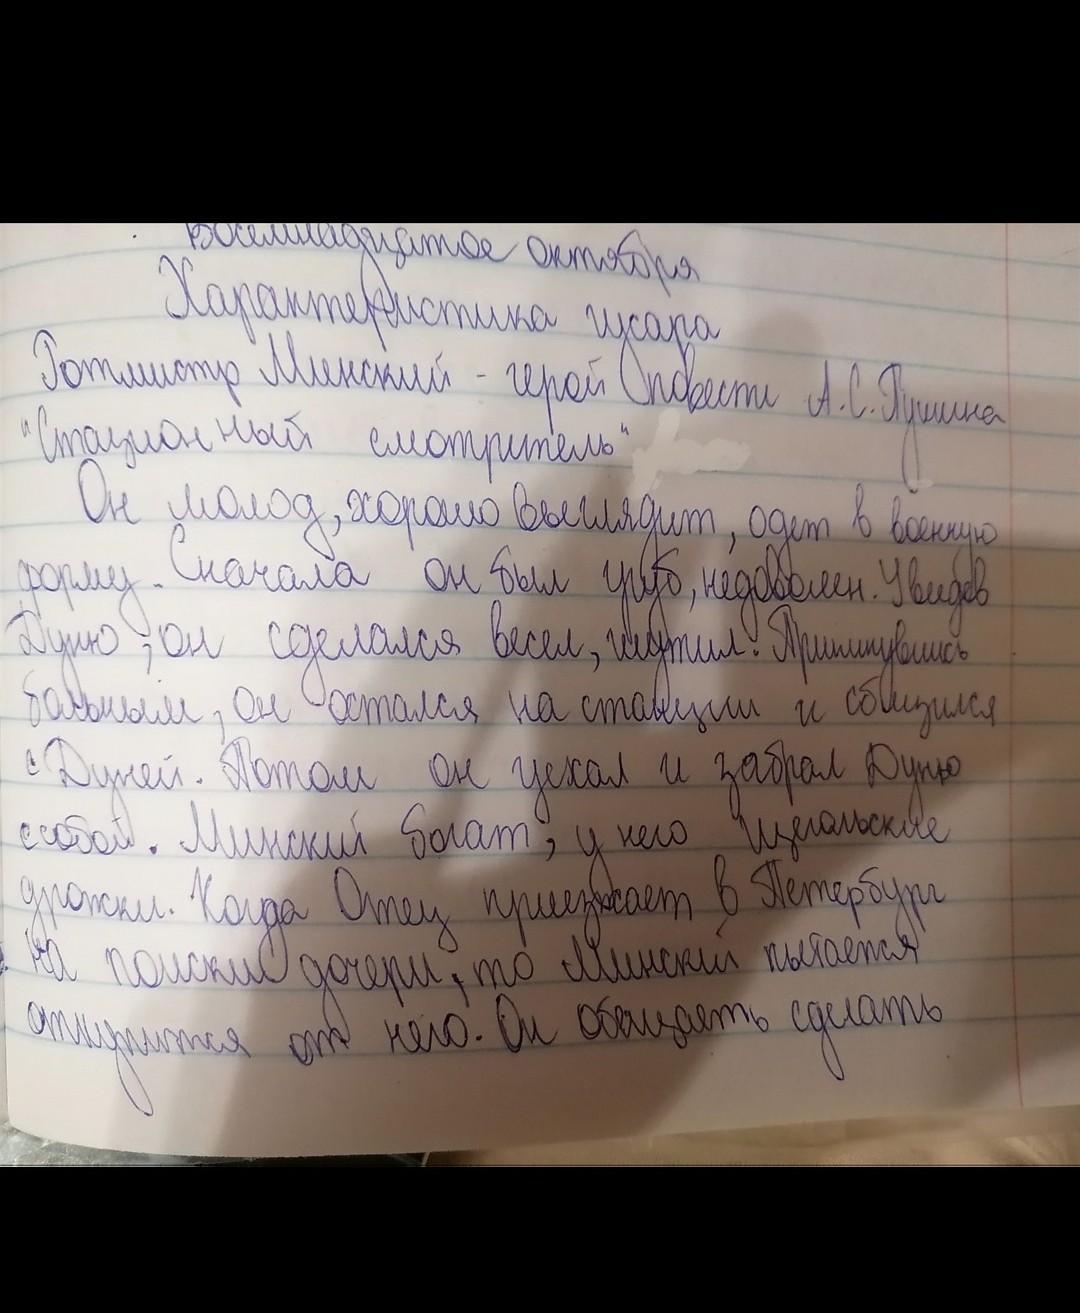 Восемнадцатое октября
Характеристика гусара
Ротмистр Минский - герой повести А.С.Пушкина
"Стационный смотритель"
Он молод, хорошо выглядит, одет в военную
форму. Сначала он был груб, недоволен. Увидев
Дуню, он сделался весел, шутил. Прикинувшись
больным, он остался на станции и сблизился
с Дуней. Потом он уехал и забрал Дуню
с собой. Минский богат, у него щегольские
дрожки. Когда Отец приезжает в Петербург
на поиски дочери, то Минский пытается
откупится от него. Он обещаеть сделать